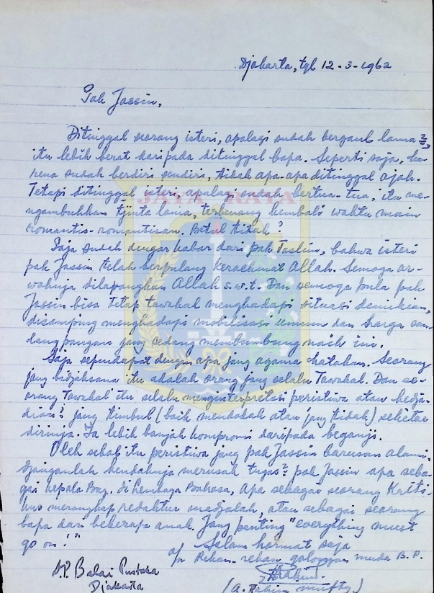 Djakarta, tgl 12-3-1962
Pak Jassin,
Ditinggal seorang isteri, apalagi sudah bergaul lama2,
itu lebih berat daripada ditinggal bapa. Seperti saja, ka-
rena sudah berdiri sendiri, tidak apa-apa ditinggal ajah.
Tetapi ditinggal isteri, apalagi sudah bertua-tua, itu me-
ngambuhkan tjinta lama, terkenang kembali waktu main
romantis-romantisan. Betul tidak?
Saja sudah dengar kabar dari pak Taslim, bahwa isteri
pak Jassin telah berpulang kerachmat Allah. Semoga ar-
wahnja dilapangkan Allah s.w.t. Dan semoga pula pak
Jassin bisa tetap tawakal menghadapi situasi demikian,
disamping menghadapi mobilisasi umum dan harga san-
dang pangan jang sedang membumbung naik ini.
Saja sependapat dengan apa jang agama katakan. Seorang
jang bidjaksana itu adalah orang jang selalu tawakal. Dan se-
orang tawakal itu selalu menginterpretir peristiwa atau kedja-
dian2 jang timbul (baik mendadak atau jang tidak) sekitar
dirinja. Ia lebih banjak kompromi daripada
Oleh sebab itu peristiwa jang pak Jassin barusan alami.
Djanganlah hendaknja merusak tugas2 pak Jassin apa seba-
gai kepala Bag. di Lembaga Bahasa, apa sebagai seorang Kriti-
kus merangkap redaktur madjalah, atau sebagai seorang
bapa dari beberapa anak. Jang penting "everything must
go on!"
Salam hormat saja
a/n Rekan-rekan golongan muda B.P.
d/a Balai Pustaka
Djakarta
(A. Rahim Mufty)
JAYA RAYA